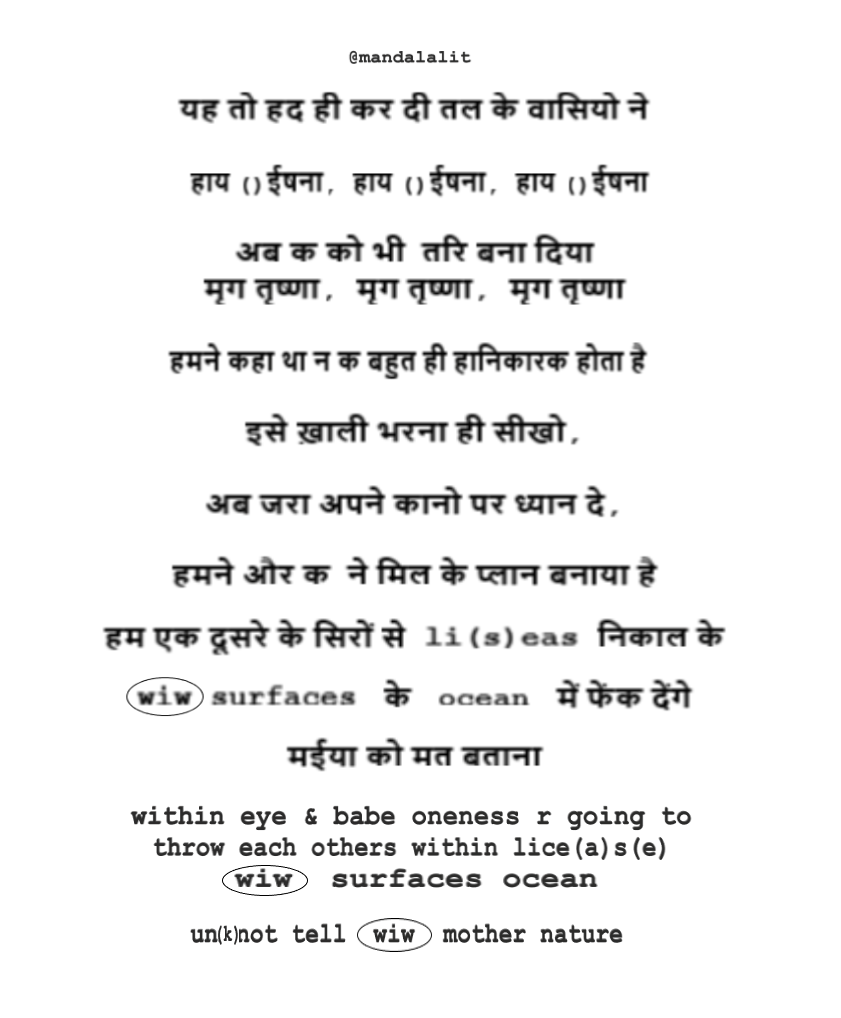 @mandalalit
यह तो हद ही कर दी तल के वासियो ने
हाय ()ईषना, हाय ()ईषना, हाय ()ईषना
अब क को भी तरि बना दिया
मृग तृष्णा, मृग तृष्णा, मृग तृष्णा
हमने कहा था न क बहुत ही हानिकारक होता है
इसे ख़ाली भरना ही सीखो,
अब जरा अपने कानो पर ध्यान दे,
हमने और क ने मिल के प्लान बनाया है
हम एक दूसरे के सिरों से li(s)eas निकाल के
wiw surfaces के ocean में फेंक देंगे
मईया को मत बताना
within eye & babe oneness r going to
throw each others within lice(a)s(e)
wiw surfaces ocean
un(k)not tell wiw mother nature